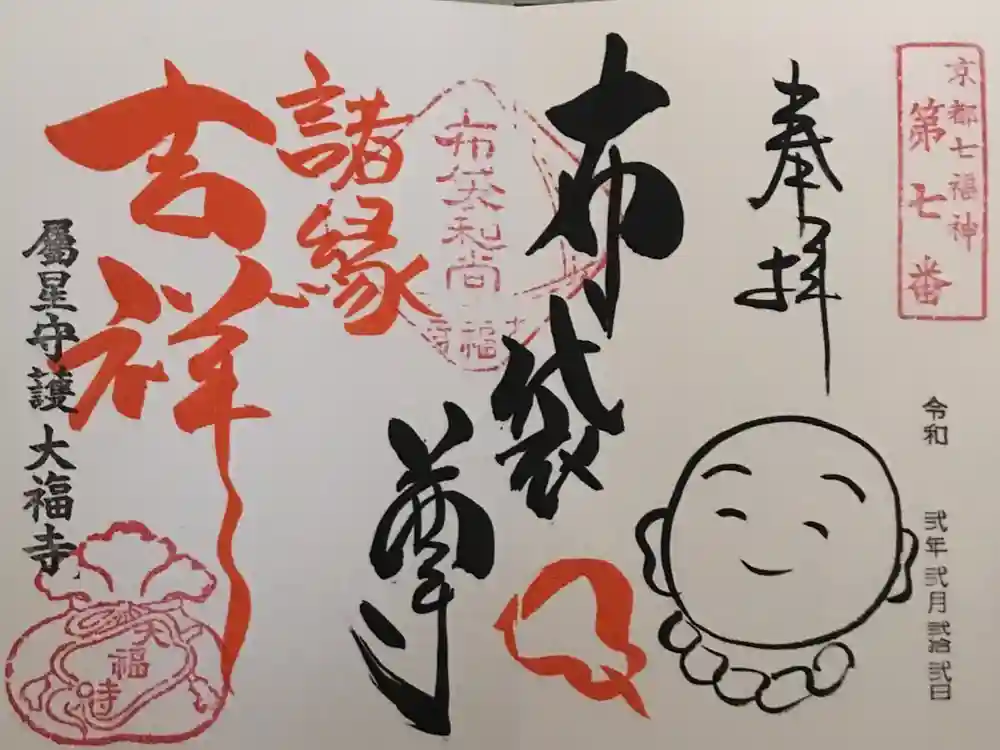 京都七福神
第七番
奉拝
令和 弐年弐月弐拾弐日
布袋尊
布袋和尚
大福寺
諸縁
吉祥
属星守護 大福寺
大福寺